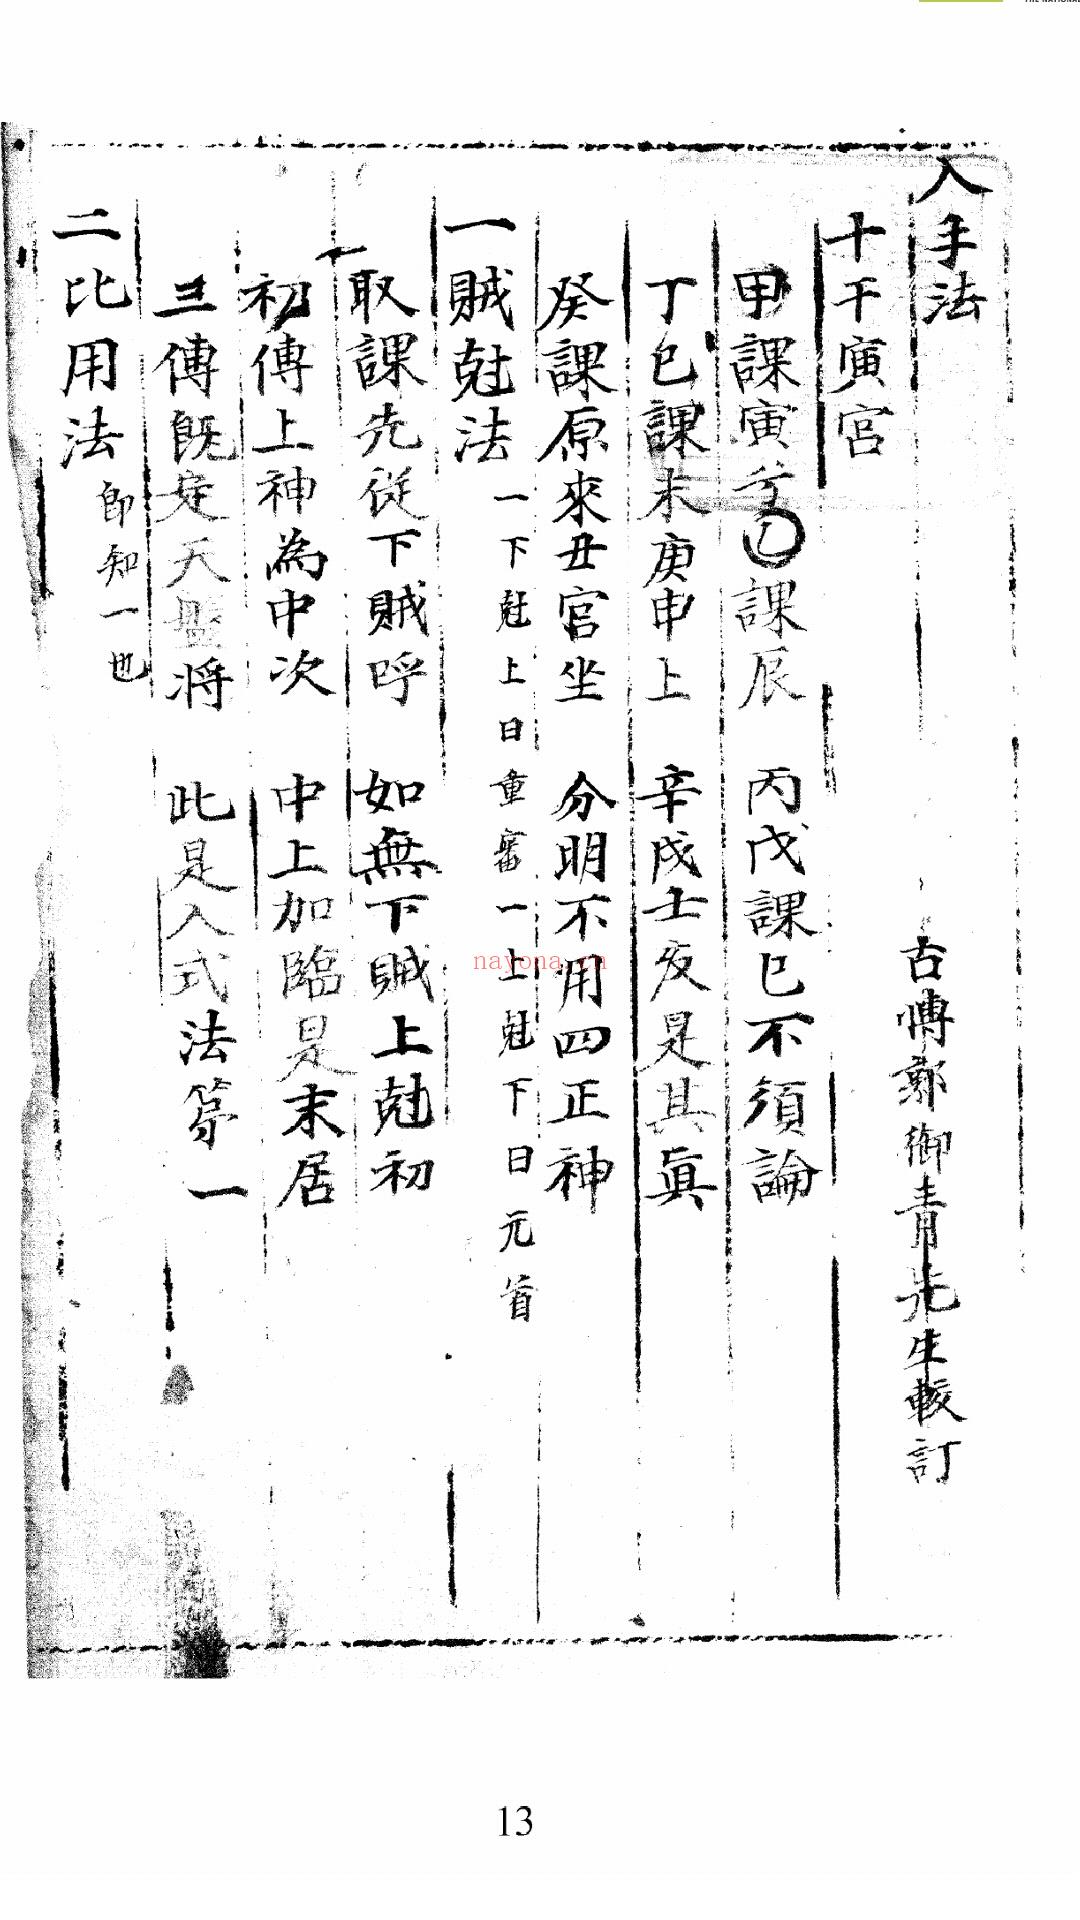 入手法
古愽鄭御青先生較訂
十干寅宮
甲課寅兮乙課辰 丙戊課巳不須論
丁己課未庚申上 辛戌壬亥是其眞
癸課原來丑宮坐 分明不用四正神
一賊尅法 一下尅上曰重審一上尅下曰元首
取課先從下賊呼 如無下賊上尅初
初傳上神為中次 中上加臨是末居
三傳旣定天盤将 此是入式法第一
二比用法 卽知一也
nayona.cn
13